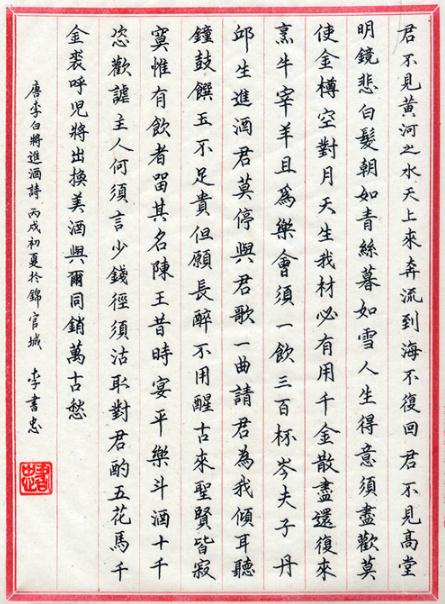 君不見黃河之水天上來奔流到海不復回君不見高堂
明鏡悲白髮朝如青絲暮如雪人生得意須盡歡莫
使金樽空對月天生我材必有用千金散盡還復來
烹牛宰羊且為樂會須一飲三百杯岑夫子丹
邱生進酒君莫停與君歌一曲請君為我傾耳聽
鐘鼓饌玉不足貴但願長醉不用醒古來聖賢皆寂
寞惟有飲者留其名陳王昔時宴平樂斗酒十千
恣歡謔主人何須言少錢徑須沽取對君酌五花馬千
金裘呼児將出換美酒與爾同銷萬古愁
唐李白將進酒詩丙戌初夏於錦官城 李書忠
書忠